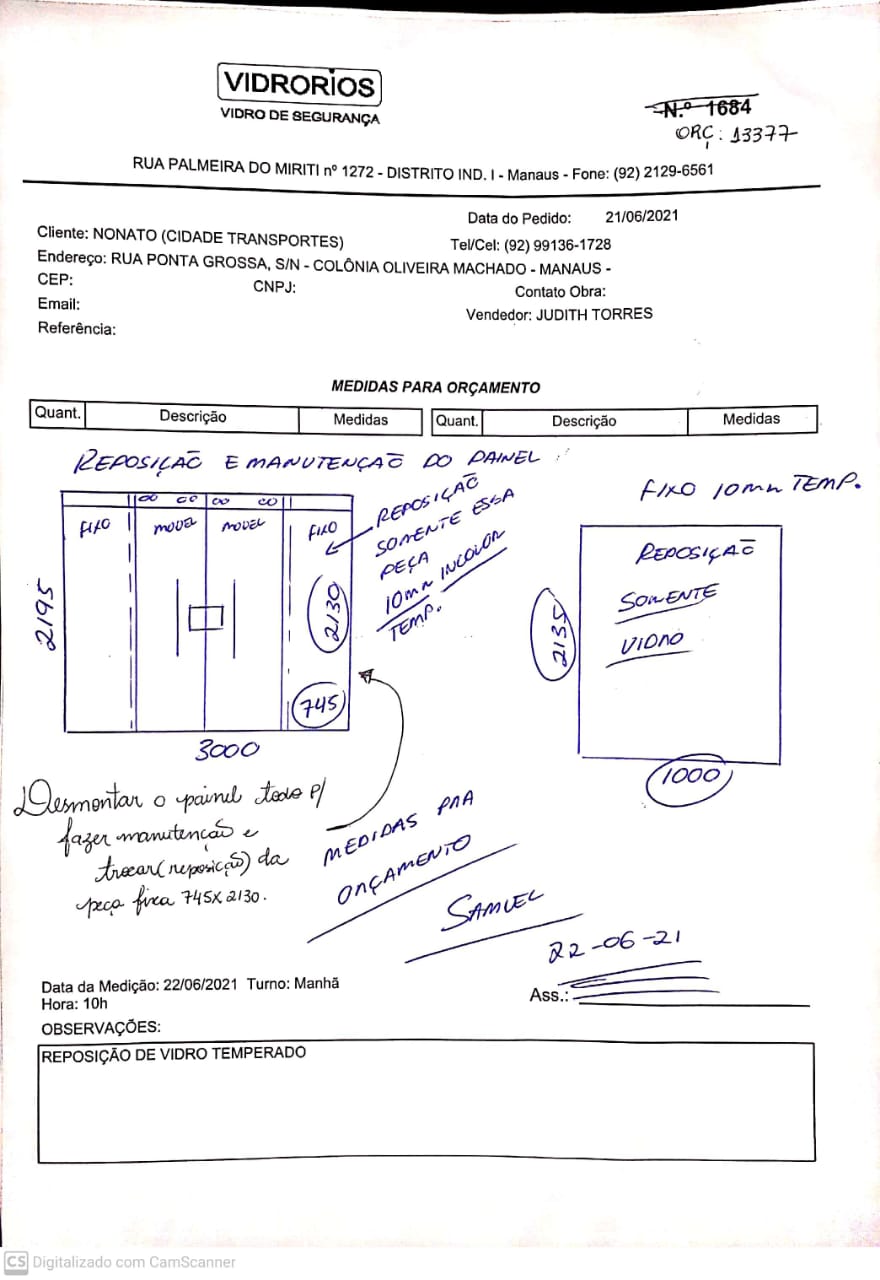 VIDRORIOS
VIDRO DE SEGURANÇA
N.º 1684
ORÇ: 13377
RUA PALMEIRA DO MIRITI nº 1272 - DISTRITO IND. I - Manaus - Fone: (92) 2129-6561
Data do Pedido: 21/06/2021
Cliente: NONATO (CIDADE TRANSPORTES)
Tel/Cel: (92) 99136-1728
Endereço: RUA PONTA GROSSA, S/N - COLÔNIA OLIVEIRA MACHADO - MANAUS -
CEP:
CNPJ:
Contato Obra:
Email:
Vendedor: JUDITH TORRES
Referência:
MEDIDAS PARA ORÇAMENTO
Quant. Descrição Medidas Quant. Descrição Medidas
REPOSIÇÃO E MANUTENÇÃO DO PAINEL
FIXO MOVEL MOVEL FIXO
2195
2130
745
3000
REPOSIÇÃO
SOMENTE ESSA
PEÇA
10mm INCOLOR
TEMP.
FIXO 10mm TEMP.
REPOSIÇÃO
SOMENTE
VIDRO
2135
1000
Desmontar o painel todo p/
fazer manutenção e
trocar (reposição) da
peça fixa 745X2130.
MEDIDAS PRA
ORÇAMENTO
SAMUEL
22-06-21
Data da Medição: 22/06/2021 Turno: Manhã
Hora: 10h
Ass.:
OBSERVAÇÕES:
REPOSIÇÃO DE VIDRO TEMPERADO
CS Digitalizado com CamScanner